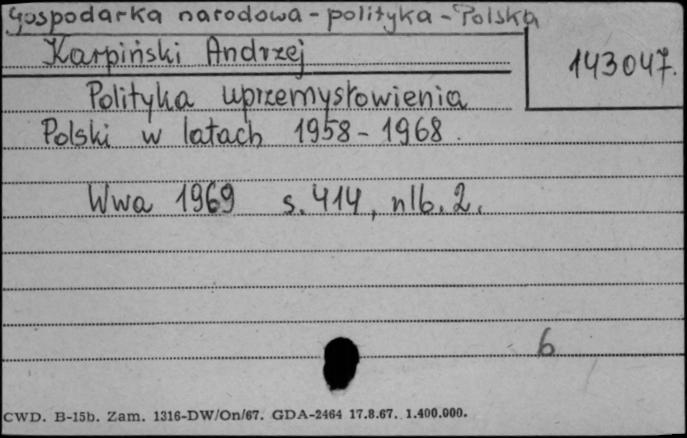 Gospodarka narodowa - polityka - Polska
Karpiński Andrzej
143047.
Polityka uprzemysłowienia
Polski w latach 1958 - 1968.
Wwa 1969 s. 414, nlb. 2.
6
CWD. B-15b. Zam. 1316-DW/On/67. GDA-2464 17.8.67. 1.400.000.